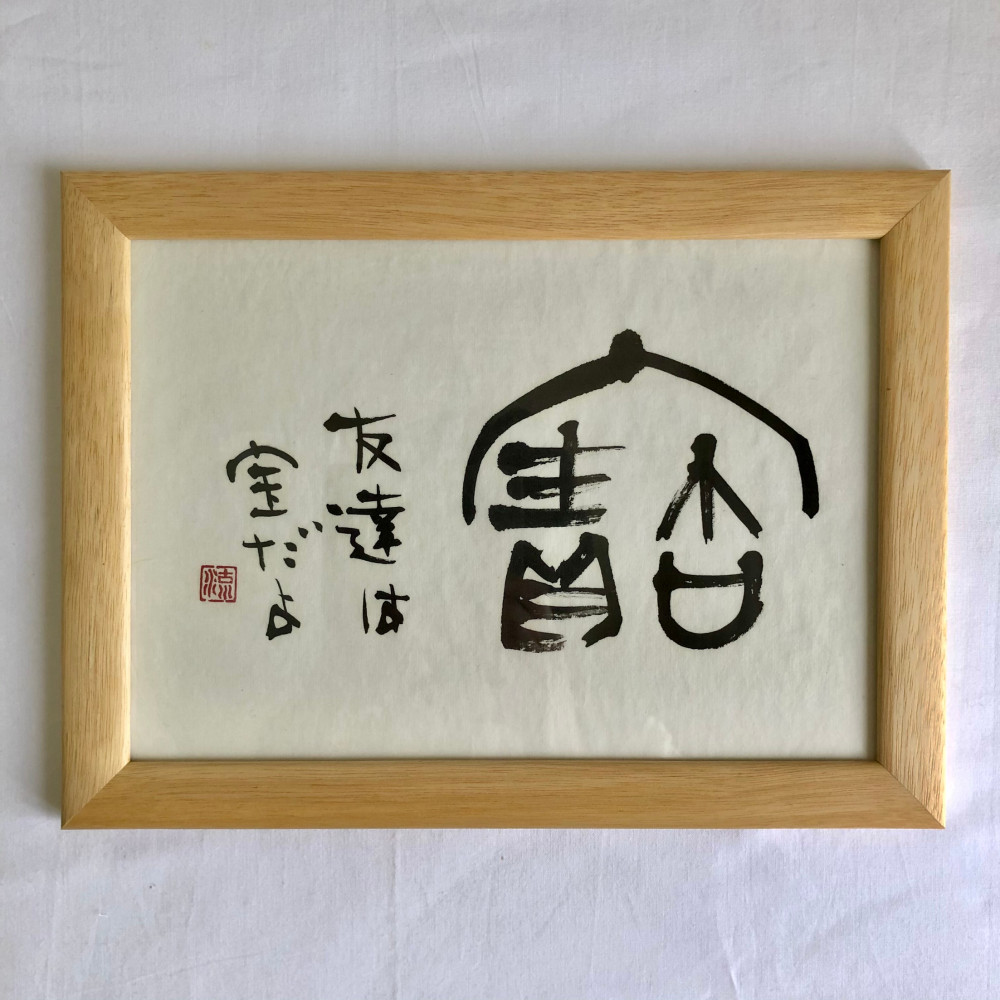 寶
友達は
宝だよ